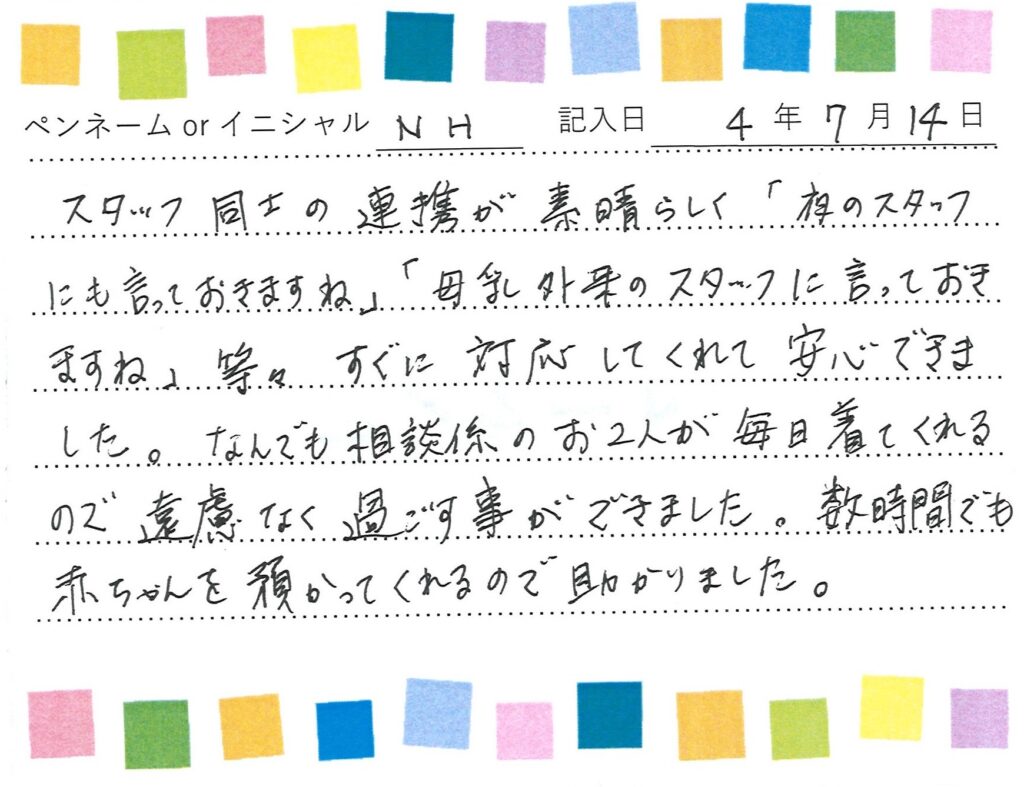 ペンネーム or イニシャル NH 記入日 4年7月14日
スタッフ同士の連携が素晴らしく「夜のスタッフ
にも言っておきますね」「母乳外来のスタッフに言っておき
ますね」等々 すぐに対応してくれて安心できま
した。なんでも相談係のお2人が毎日着てくれる
ので遠慮なく過ごす事ができました。数時間でも
赤ちゃんを預かってくれるので助かりました。